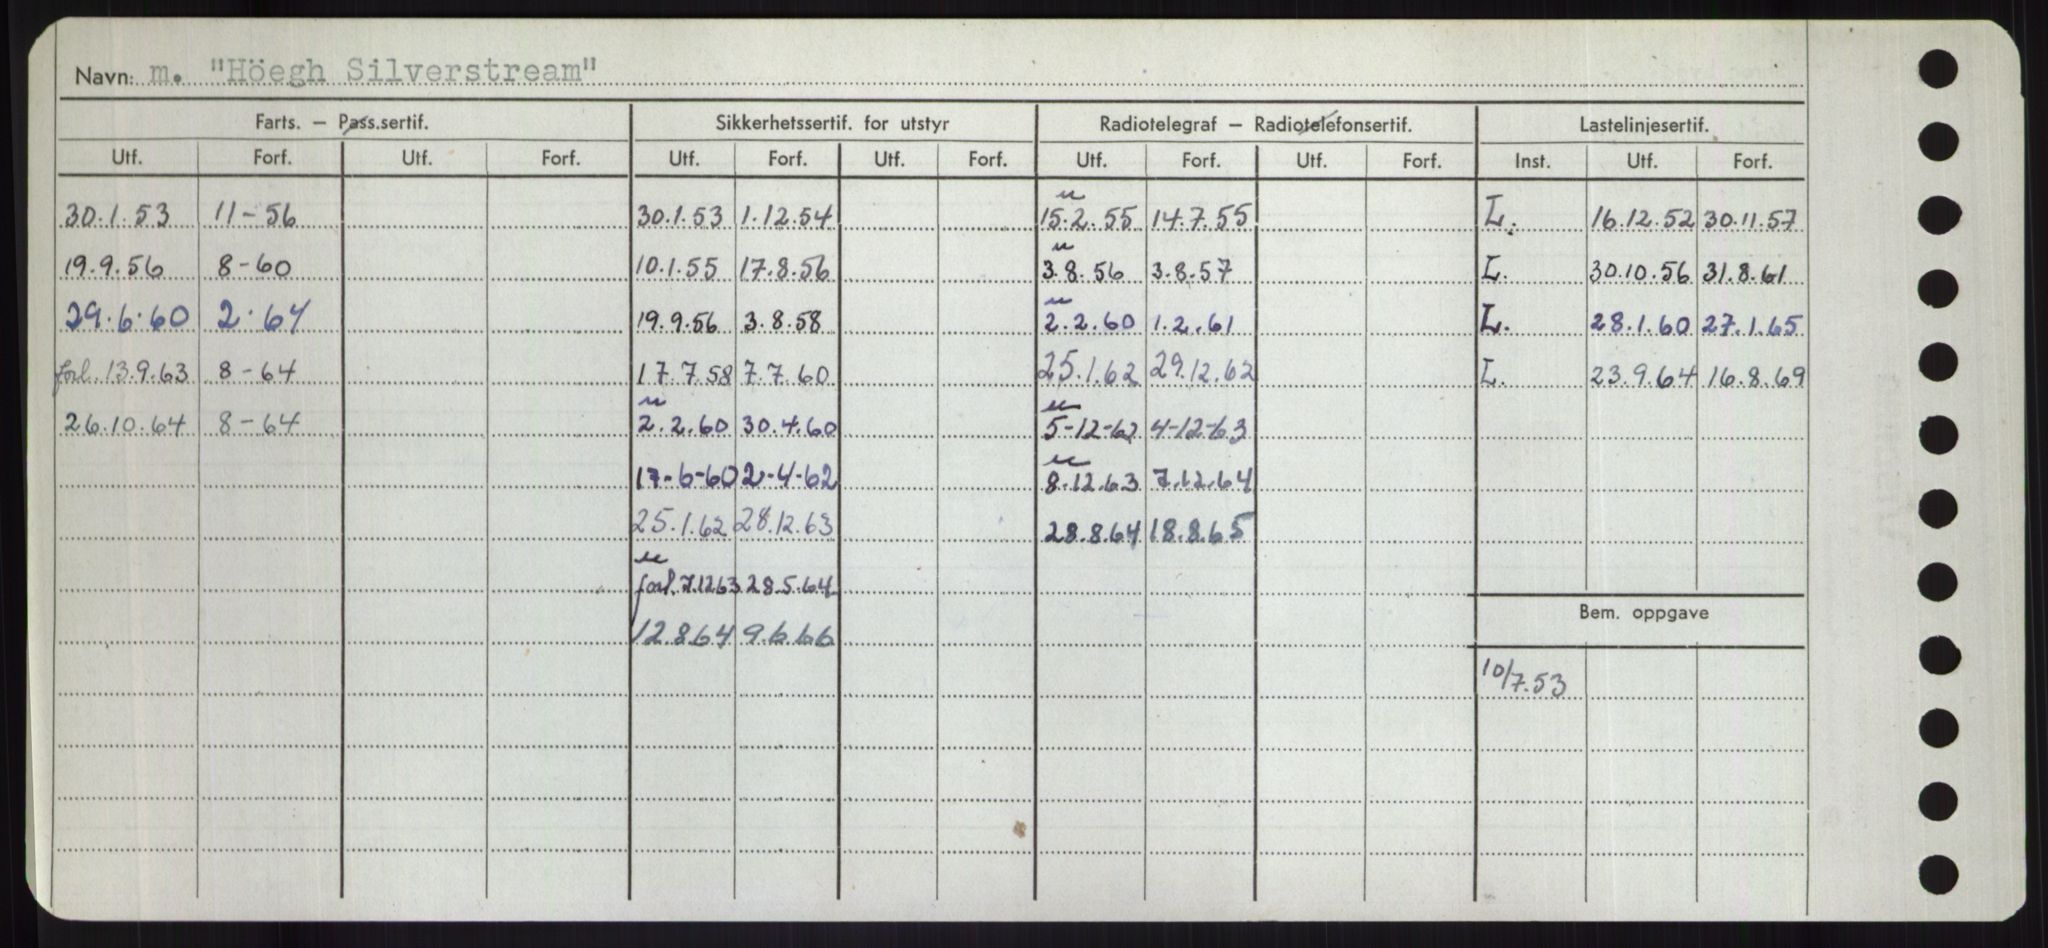 Navn: m. "Höegh Silverstream"
Farts. – Pass.sertif. Sikkerhetssertif. for utstyr Radiotelegraf – Radiotelefonsertif. Lastelinjesertif.
Utf. Forf. Utf. Forf. Utf. Forf. Utf. Forf. Utf. Forf. Utf. Forf. Inst. Utf. Forf.
u
30.1.53 11-56 30.1.53 1.12.54 15.2.55 14.7.55 L. 16.12.52 30.11.57
u
19.9.56 8-60 10.1.55 17.8.56 3.8.56 3.8.57 L. 30.10.56 31.8.61
u
29.6.60 2.64 19.9.56 3.8.58 2.2.60 1.2.61 L. 28.1.60 27.1.65
forl. 13.9.63 8-64 17.7.58 7.7.60 25.1.62 29.12.62 L. 23.9.64 16.8.69
u u
26.10.64 8-64 2.2.60 30.4.60 5-12-62 4-12-63
u
17-6-60 2-4-62 8.12.63 7.12.64
25.1.62 28.12.63 28.8.64 18.8.65
u
forl. 7.12.63 28.5.64
Bem. oppgave
12.8.64 9.6.66
10/7.53